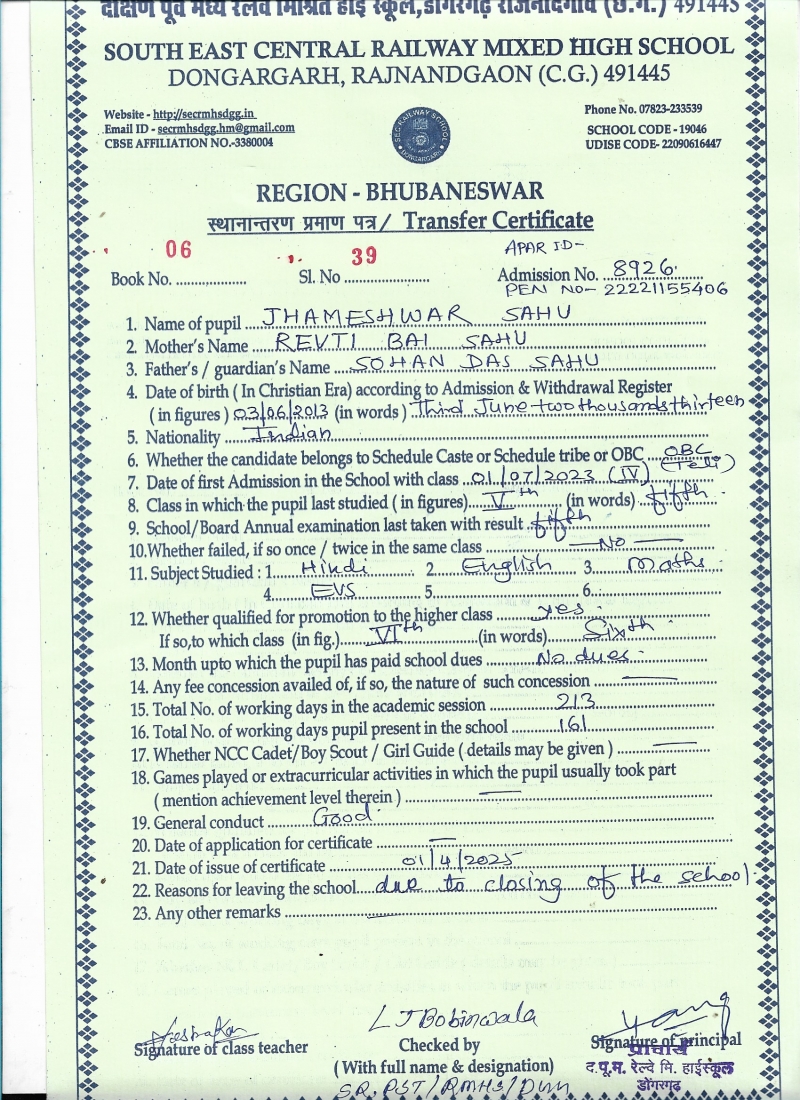 दक्षिण पूर्व मध्य रेलवे मिश्रित हाई स्कूल,डोंगरगढ़ राजनांदगांव (छ.ग.) 491445
SOUTH EAST CENTRAL RAILWAY MIXED HIGH SCHOOL
DONGARGARH, RAJNANDGAON (C.G.) 491445
Website - http://secrmhsdgg.in
Email ID - secrmhsdgg.hm@gmail.com
CBSE AFFILIATION NO.-3380004
SEC RAILWAY SCHOOL
DONGARGARH
Phone No. 07823-233539
SCHOOL CODE - 19046
UDISE CODE- 22090616447
REGION - BHUBANESWAR
स्थानान्तरण प्रमाण पत्र / Transfer Certificate
APAR ID-
Book No. 06 Sl. No 39 Admission No. 8926
PEN No- 22221155406
1. Name of pupil JHAMESHWAR SAHU
2. Mother's Name REVTI BAI SAHU
3. Father's / guardian's Name SOHAN DAS SAHU
4. Date of birth ( In Christian Era) according to Admission & Withdrawal Register
( in figures ) 03/06/2013 (in words ) Third June-two thousands thirteen
5. Nationality Indian
6. Whether the candidate belongs to Schedule Caste or Schedule tribe or OBC OBC (Teli)
7. Date of first Admission in the School with class 01/07/2023 (IV)
8. Class in which the pupil last studied ( in figures) Vth (in words) fifth
9. School/Board Annual examination last taken with result fifth
10.Whether failed, if so once / twice in the same class — No —
11. Subject Studied : 1. Hindi 2. English 3. Maths
4. EVS 5. 6.
12. Whether qualified for promotion to the higher class yes
If so,to which class (in fig.) VIth (in words) Sixth
13. Month upto which the pupil has paid school dues No dues
14. Any fee concession availed of, if so, the nature of such concession —
15. Total No. of working days in the academic session 213
16. Total No. of working days pupil present in the school 161
17. Whether NCC Cadet/Boy Scout / Girl Guide ( details may be given ) —
18. Games played or extracurricular activities in which the pupil usually took part
( mention achievement level therein ) —
19. General conduct Good
20. Date of application for certificate —
21. Date of issue of certificate 01/4/2025
22. Reasons for leaving the school due to closing of the school
23. Any other remarks
L J Bobinwala
Signature of class teacher Checked by Signature of principal
(With full name & designation)
प्राचार्य
द.पू.म. रेल्वे मि. हाईस्कूल
डोंगरगढ़